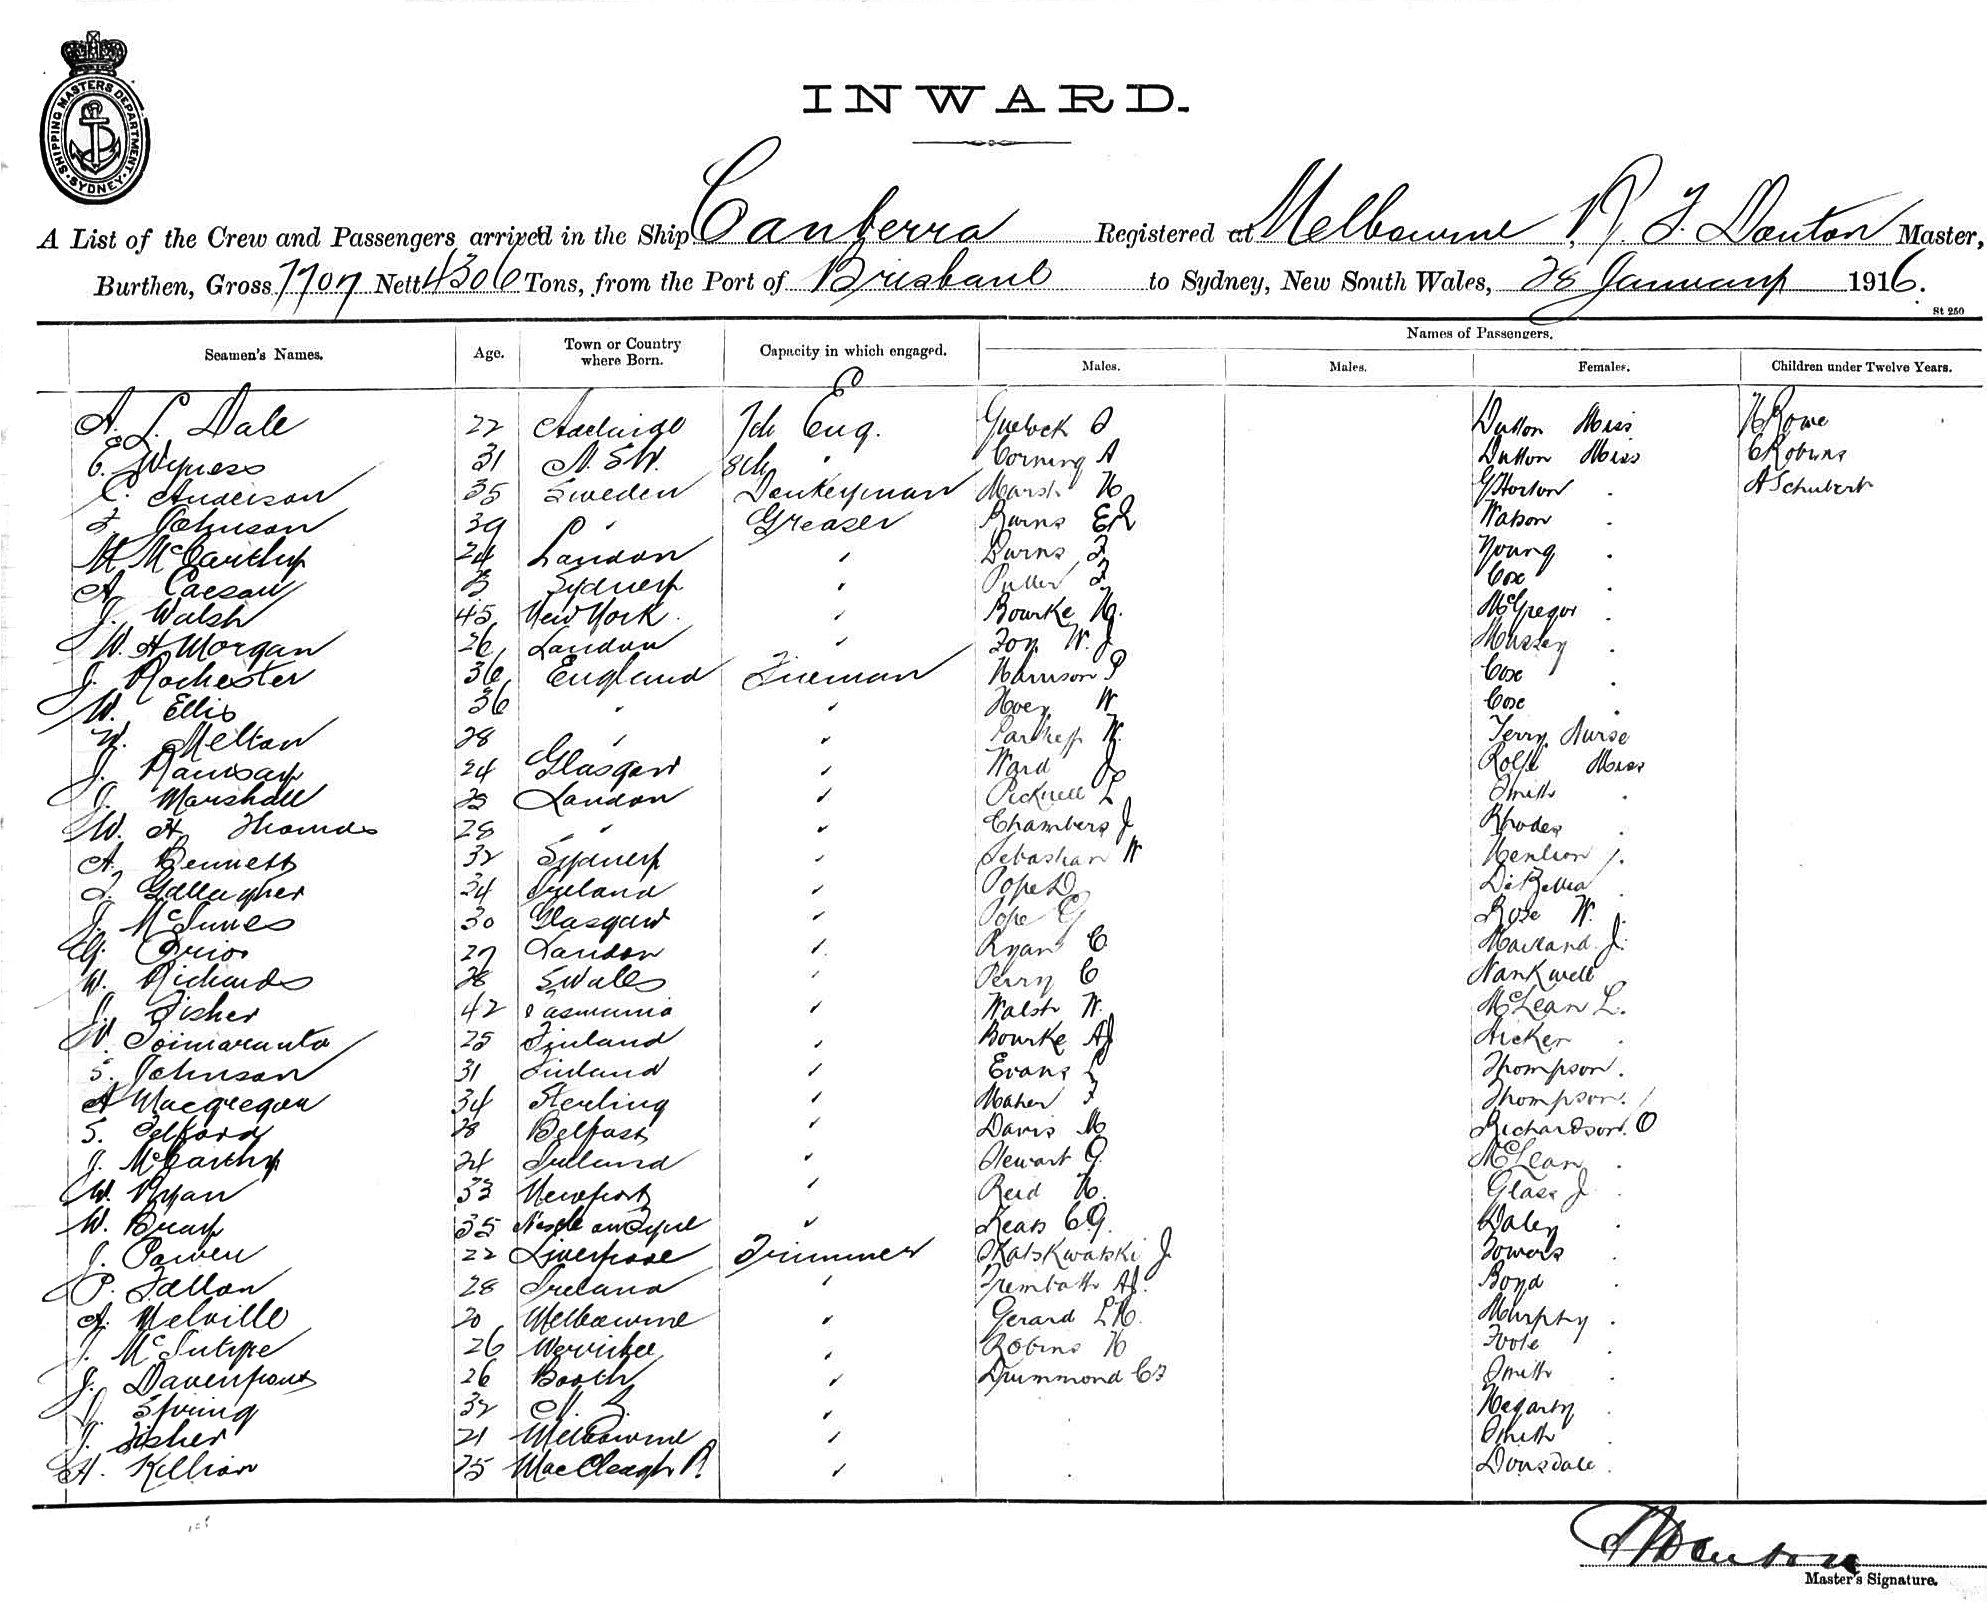 SHIPPING MASTERS DEPARTMENT
SYDNEY
INWARD.
A List of the Crew and Passengers arrived in the Ship Canberra Registered at Melbourne Danton Master,
Burthen, Gross 7707 Nett 4306 Tons, from the Port of Brisbane to Sydney, New South Wales, 28 January 1916.
St 250
Names of Passengers.
Seamen's Names. Age. Town or Country where Born. Capacity in which engaged. Males. Males. Females. Children under Twelve Years.
A. L. Dale 22 Adelaide 7th Eng. Dutton Miss H Rowe
31 N. S.W. 8th " Corning A Dutton Miss C Robins
C. Anderson 35 Sweden Donkeyman Marsh H G Horton " A Schubert
Johnson 39 " Greaser Burns Watson "
M McCarthy 24 London " Burns F Young "
A. Caesar Sydney " F Cox "
J. Walsh 45 New York " Bourke H. McGregor "
W. H Morgan 26 London " Foy W. J Massey "
J. Rochester 36 England Fireman Harrison P Cox "
W. Ellis 36 " " Hoey W Cox "
Melton 28 " " W. Terry Nurse
J. Ramsay 24 Glasgow " Ward J Rolfe Miss
J. Marshall London " Picknell L Smith "
W. H Thomas 28 " " Chambers J Rhodes "
A. Bennett 32 Sydney " Sebastian W
Gallagher 34 Ireland " Pope D
J. McInnes 30 Glasgow " Pope G Rose W.
27 London " Ryan C J.
W. Richards 28 S Wales " Perry C Nankwell
J. Fisher 42 Tasmania " Walsh W. McLean L.
W. 25 Finland " Bourke AJ Hicker "
S. Johnson 31 Finland " Evans Thompson "
A Macgregor 34 Sterling " Maher F Thompson "
S. Telford 28 Belfast " Davis M Richardson. O
J. McCarthy 24 Ireland " Stewart G. McLean "
W. Ryan 33 Newport " Reid H. Glass J "
W. Bray 35 " Keats C G. Daley "
J. Power 22 Liverpool Trimmer J Towers "
P. Fallon 28 Ireland " Trembath AJ. Boyd "
A. Melville 20 Melbourne " Gerard L H. Murphy "
J. McIntyre 26 " Robins H Foote "
J. Davenport 26 " Drummond C F Smith "
J. Spring 32 N. Z. " Hegarty "
J. Fisher 21 Melbourne " Smith "
H. Killian 25 "
Master's Signature.